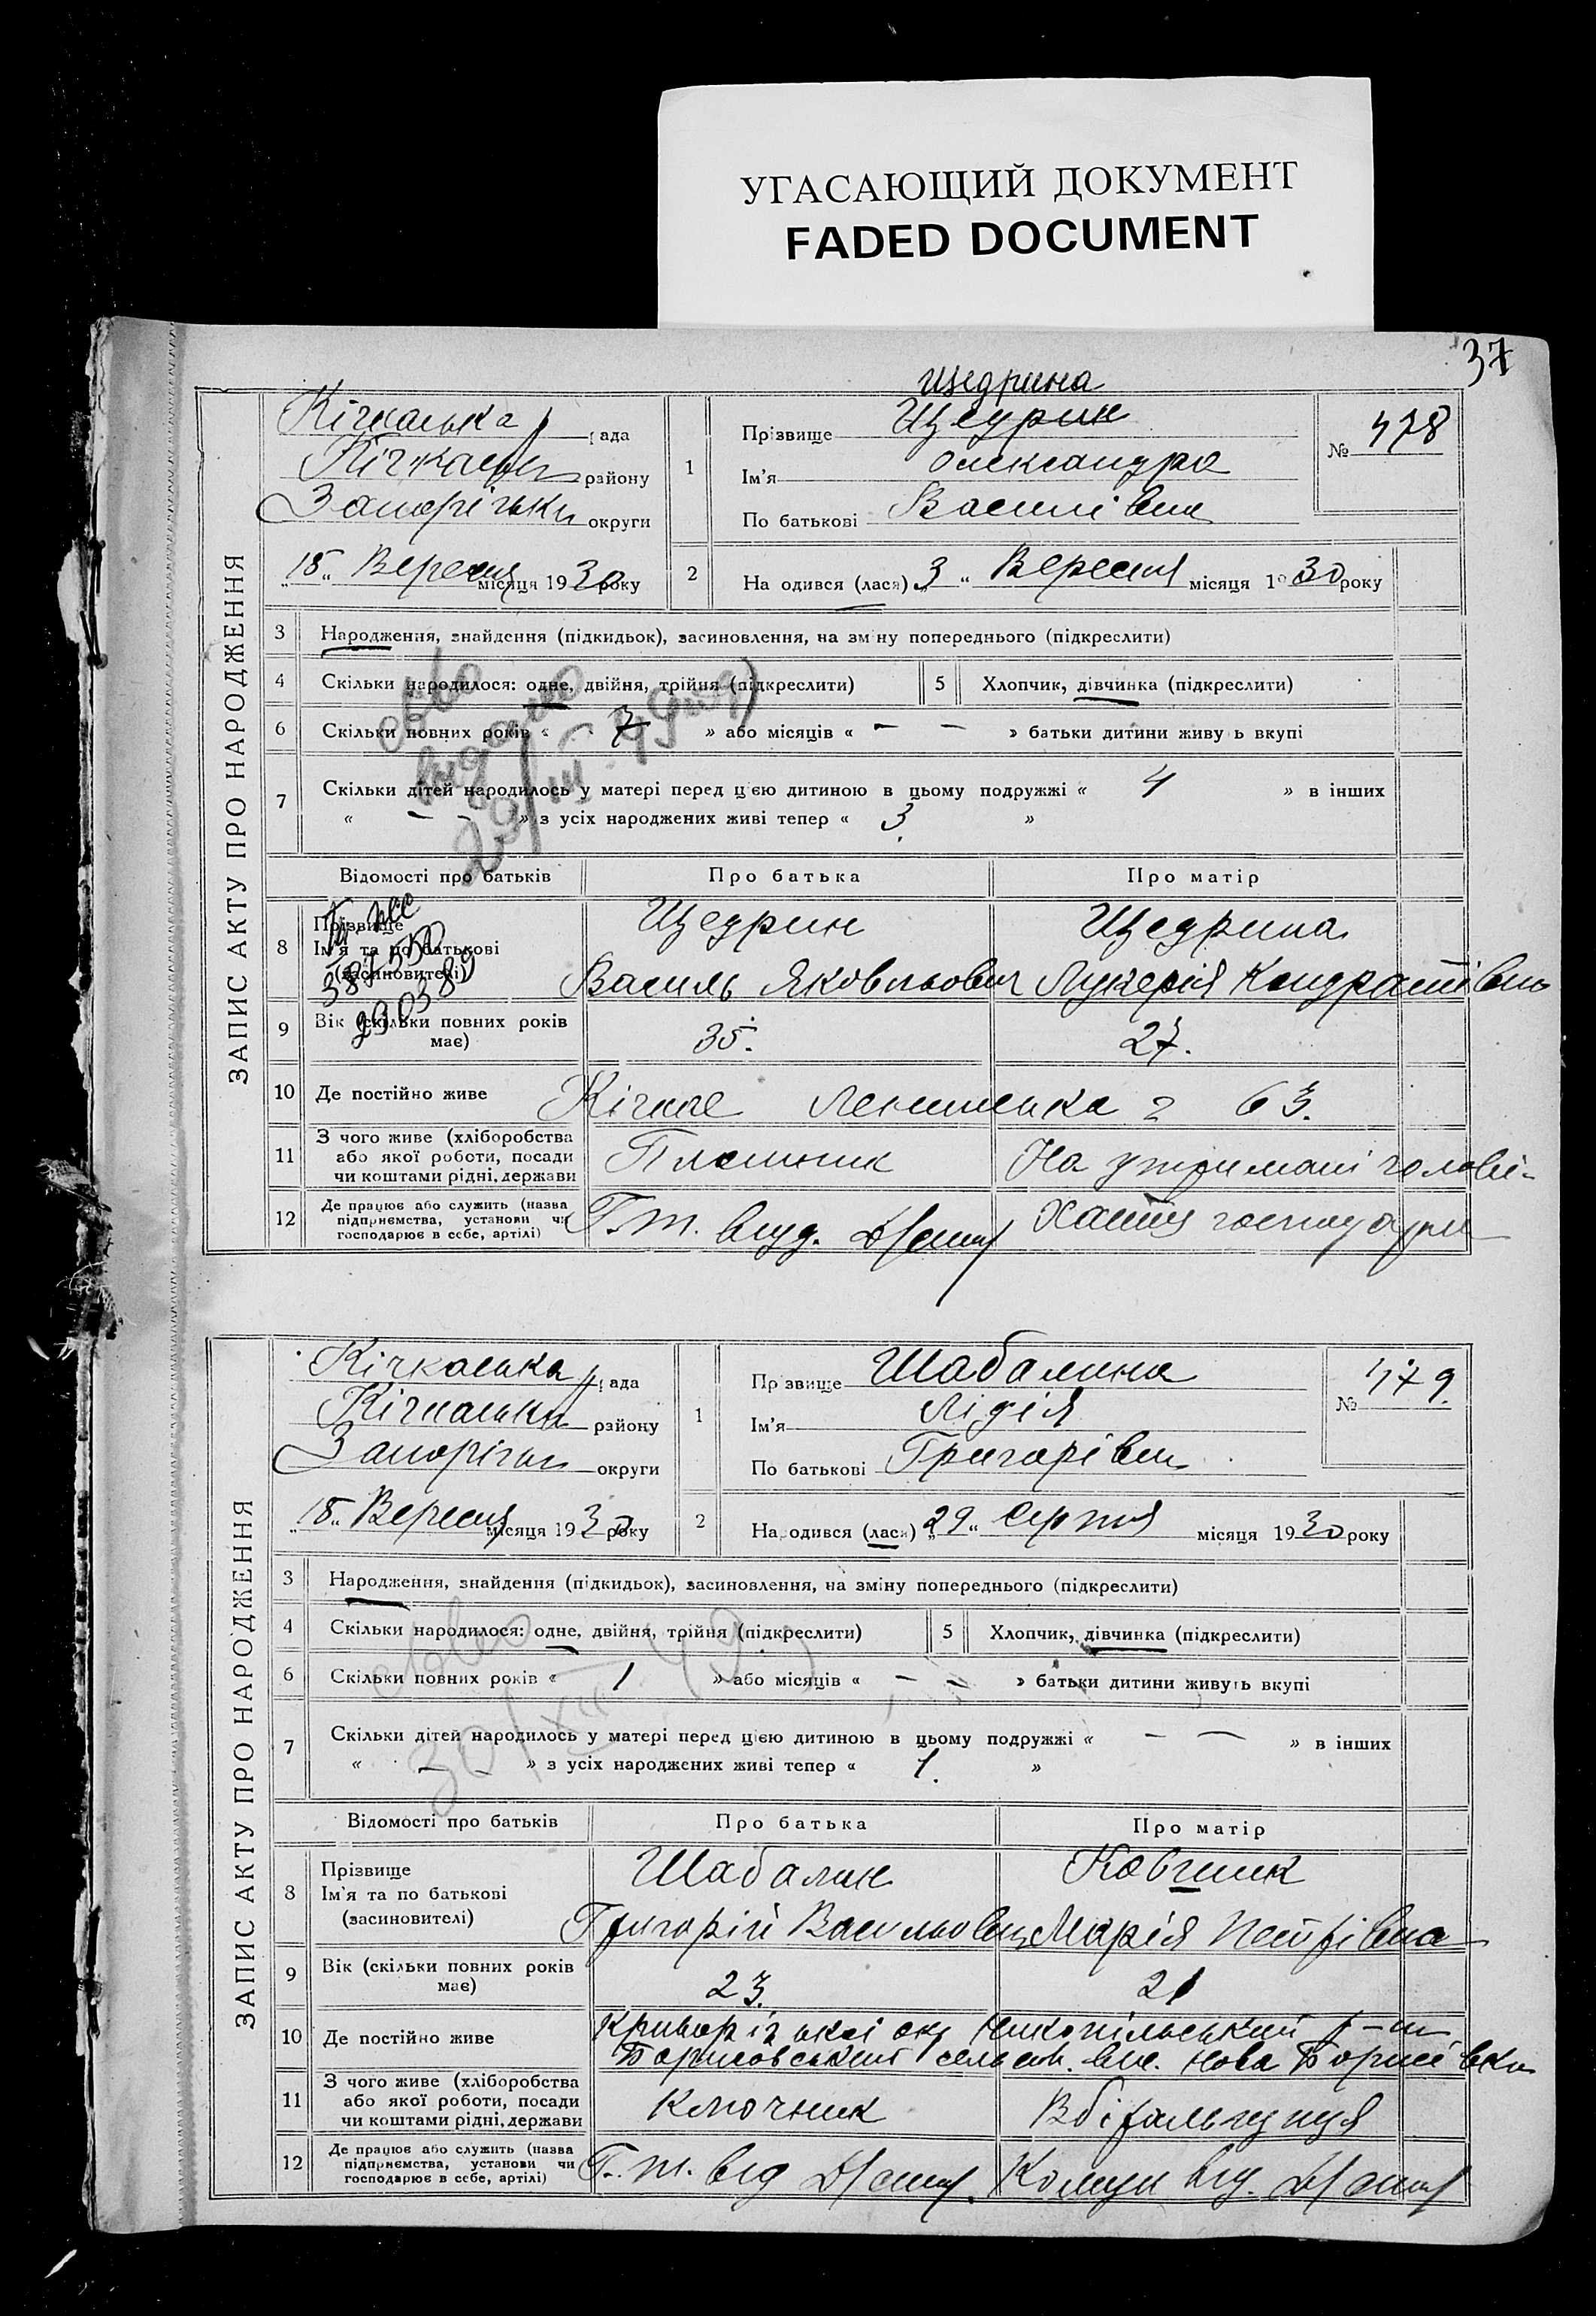 УГАСАЮЩИЙ ДОКУМЕНТ
FADED DOCUMENT
37
ЗАПИС АКТУ ПРО НАРОДЖЕННЯ
Щедрина
Кічкаська рада
району
округи
1
Прізвище Щедрин
Ім'я Олександра
По батькові Василівна
№ 478
"18" Вересня місяця 1930 року
2
На одився (лася) "3" Вересня місяця 1930 року
3 Народження, знайдення (підкидьок), засиновлення, на зміну попереднього (підкреслити)
4 Скільки народилося: одне, двійня, трійня (підкреслити)
5 Хлопчик, дівчинка (підкреслити)
6 Скільки повних років « 7 » або місяців « — — » батьки дитини живу ь вкупі
7 Скільки дітей народилось у матері перед цією дитиною в цьому подружжі « 4 » в інших
« — — » з усіх народжених живі тепер « 3. »
29/III-49
Відомості про батьків Про батька Про матір
8 Прізвище
Ім'я та по батькові
(засиновителі)
Щедрин Щедрина
Василь Яковльович Лукерія Кондратівна
9 Вік (скільки повних років має) 35. 27.
10 Де постійно живе Кічкас Ленінська 2 63.
11 З чого живе (хліборобства або якої роботи, посади чи коштами рідні, держави
На утримані
12 Де працює або служить (назва підприємства, установи чи господарює в себе, артілі)
Г.т.
ЗАПИС АКТУ ПРО НАРОДЖЕННЯ
Кічкаська рада
району
округи
1
Пр звище Шабалина
Ім'я Лідія
По батькові Григорівна
№ 479.
"18" Вересня місяця 1930 року
2
На одився (лася) "29" Серпня місяця 1930 року
3 Народження, знайдення (підкидьок), засиновлення, на зміну попереднього (підкреслити)
4 Скільки народилося: одне, двійня, трійня (підкреслити)
5 Хлопчик, дівчинка (підкреслити)
6 Скільки повних років « 1 » або місяців « — — » батьки дитини живуть вкупі
7 Скільки дітей народилось у матері перед цією дитиною в цьому подружжі « — — » в інших
« — — » з усіх народжених живі тепер « 1. »
30/XII 49
Відомості про батьків Про батька Про матір
8 Прізвище
Ім'я та по батькові
(засиновителі)
Шабалин
Григорій Васильович Марія Петрівна
9 Вік (скільки повних років має) 23. 21
10 Де постійно живе Криворізької окр Никопільський р-н
Нова Борисівка
11 З чого живе (хліборобства або якої роботи, посади чи коштами рідні, держави
Ключник
12 Де працює або служить (назва підприємства, установи чи господарює в себе, артілі)
Г.т. від